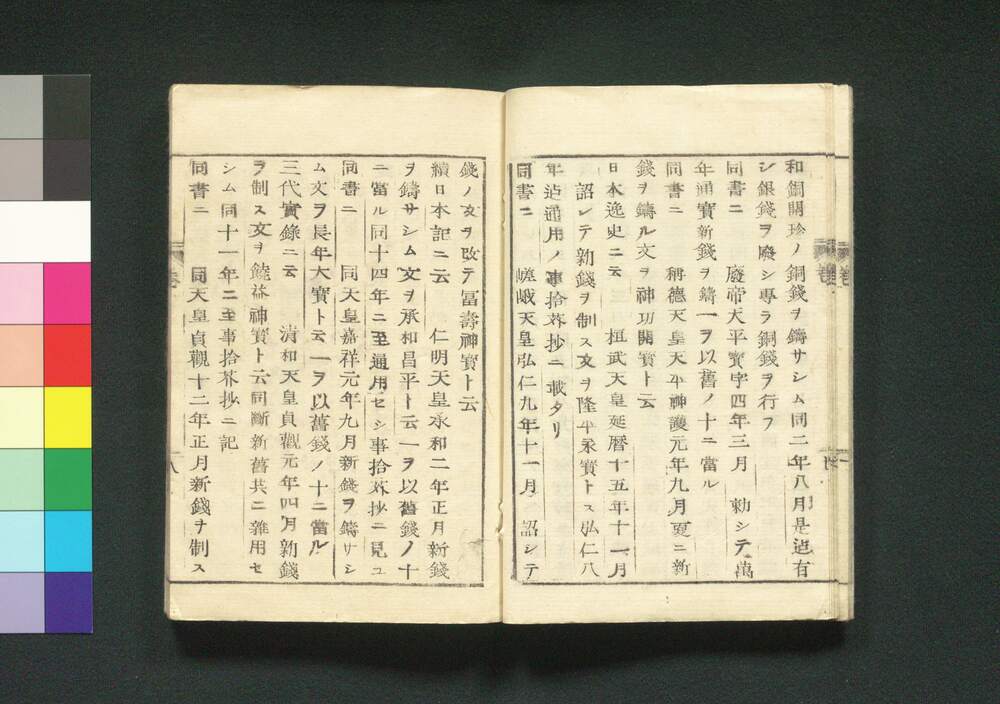 和銅開珍ノ銅錢ヲ鑄サシム同二年八月是迠有
シ銀錢ヲ廢シ專ラ銅錢ヲ行フ
同書ニ 廢帝天平寳字四年三月 勅シテ萬
年通寶新錢ヲ鑄一ヲ以舊ノ十ニ當ル
同書ニ 稱德天皇天平神護元年九月更ニ新
錢ヲ鑄ル文ヲ神功開寶ト云
日本逸史ニ云 桓武天皇延暦十五年十一月
詔シテ新錢ヲ制ス文ヲ隆平永寶トス弘仁八
年迠通用ノ事拾芥抄ニ載タリ
同書ニ 嵯峨天皇弘仁九年十一月 詔シテ
錢ノ文ヲ改テ冨壽神寳ト云
續日本記ニ云 仁明天皇承和二年正月新錢
ヲ鑄サシム文ヲ承和昌平ト云一ヲ以舊錢ノ十
ニ當ル同十四年ニ至通用セシ事拾芥抄ニ見ユ
同書ニ 同天皇嘉祥元年九月新錢ヲ鑄サシ
ム文ヲ長年大寶ト云一ヲ以舊錢ノ十ニ當ル
三代實錄ニ云 清和天皇貞觀元年四月新錢
ヲ制ス文ヲ饒益神寳ト云同斷新舊共ニ雜用セ
シム同十一年ニ至事拾芥抄ニ記
同書ニ 同天皇貞觀十二年正月新錢ヲ制ス
八